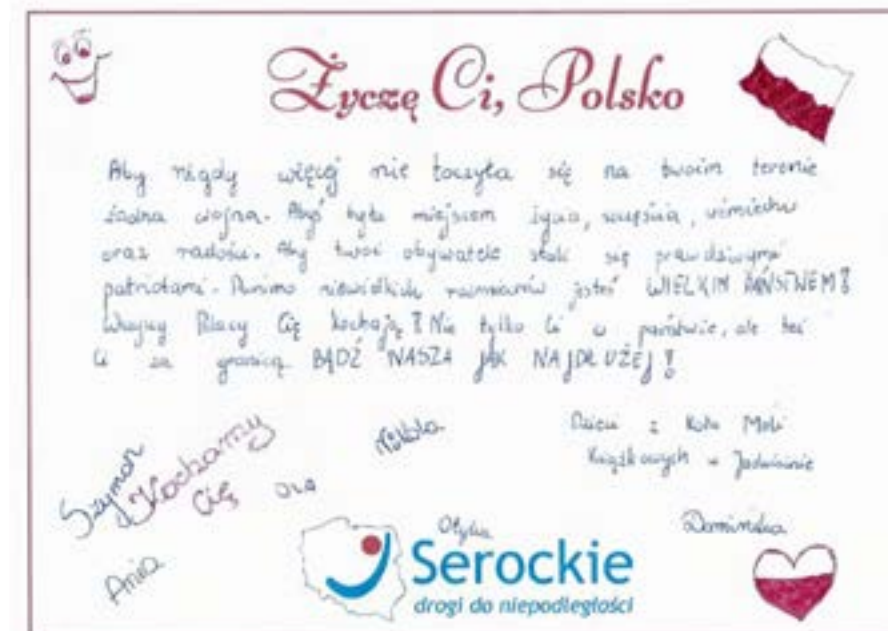 Życzę Ci, Polsko
Aby nigdy więcej nie toczyła się na twoim terenie
żadna wojna. Abyś była miejscem życia, szczęścia, uśmiechu
oraz radości. Aby twoi obywatele stali się prawdziwymi
patriotami. Pomimo niewielkich rozmiarów jesteś WIELKIM PAŃSTWEM!
Wszyscy Polacy Cię kochają! Nie tylko Ci w państwie, ale też
Ci za granicą BĄDŹ NASZA JAK NAJDŁUŻEJ!
Dzieci z Koła Moli
Książkowych w Jadwisinie
Szymon
Kochamy
Cię
Nikola
Ania
Oliwia
Dominika
Serockie
drogi do niepodległości